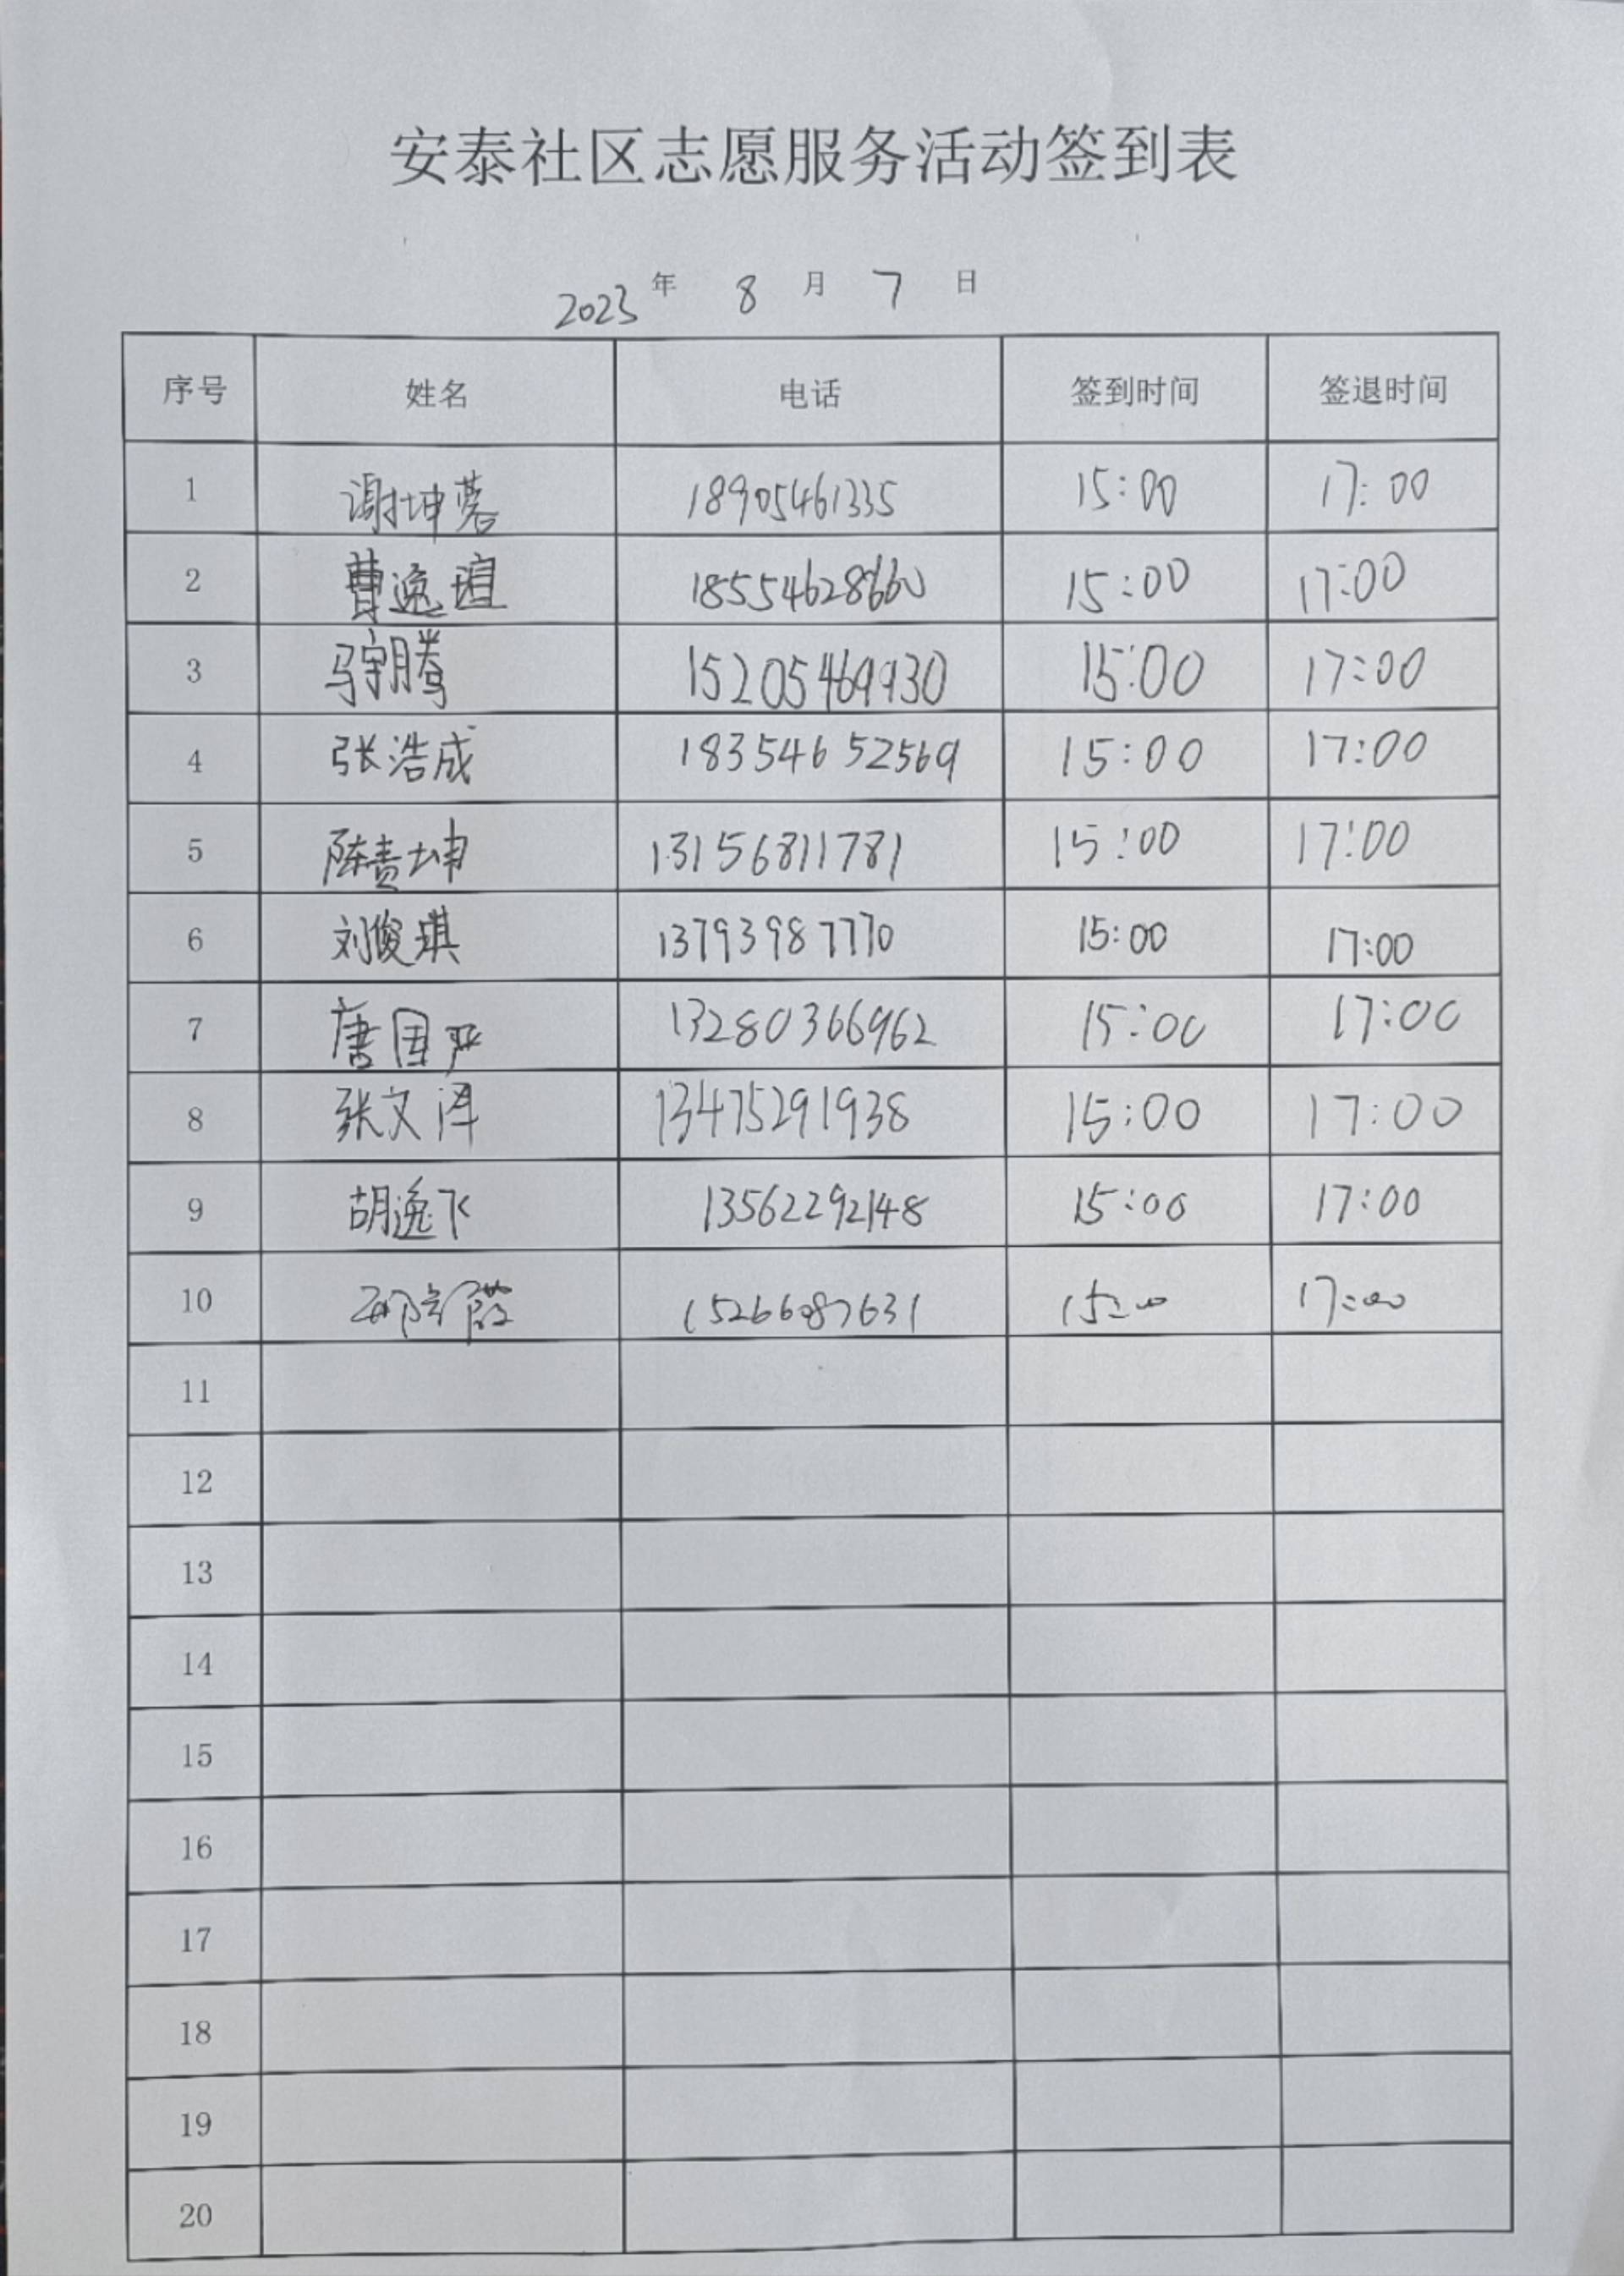 安泰社区志愿服务活动签到表
2023 年 8 月 7 日
序号 姓名 电话 签到时间 签退时间
1 谢坤蓉 18905461335 15:00 17:00
2 曹逸瑄 18554628660 15:00 17:00
3 马宇腾 15205469930 15:00 17:00
4 张浩成 18354652569 15:00 17:00
5 陈责坤 13156811781 15:00 17:00
6 刘俊琪 13793987770 15:00 17:00
7 唐国严 13280366962 15:00 17:00
8 张文泽 13475291938 15:00 17:00
9 胡逸飞 13562292148 15:00 17:00
10 15266087631 15:00 17:00
11
12
13
14
15
16
17
18
19
20